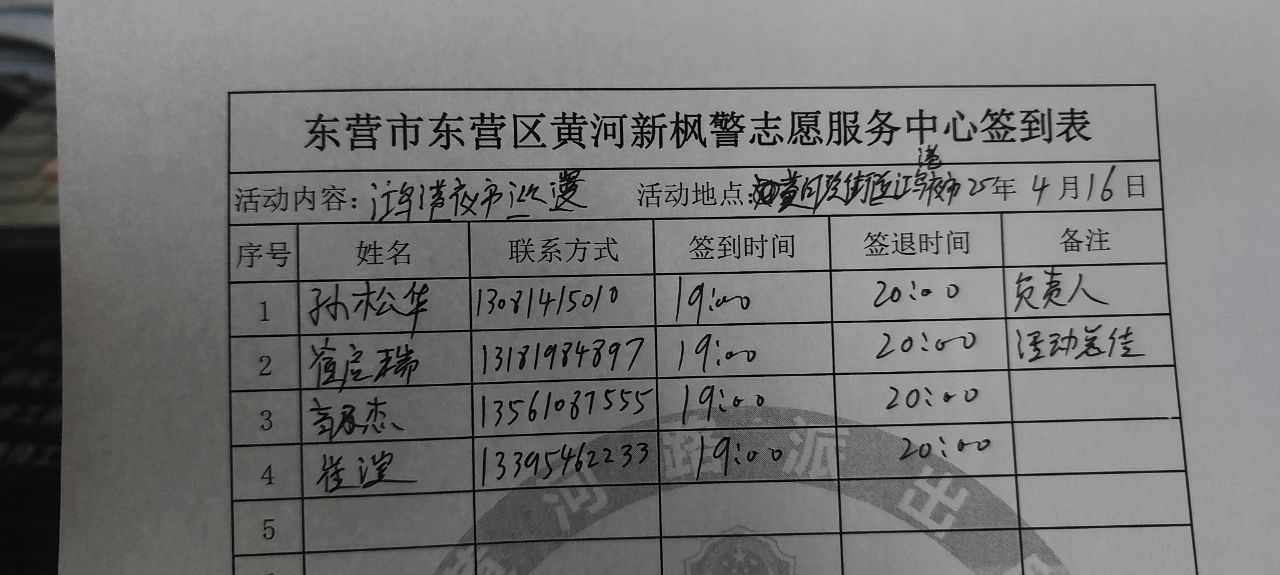 东营市东营区黄河新枫警志愿服务中心签到表
活动内容：江阜港夜市巡逻 活动地点：黄河路街道江阜港夜市 25年4月16日
序号 姓名 联系方式 签到时间 签退时间 备注
1 孙松华 13081415010 19:00 20:00 负责人
2 13181984897 19:00 20:00 活动总结
3 13561087555 19:00 20:00
4 崔滢 13395462233 19:00 20:00
5
河路派出